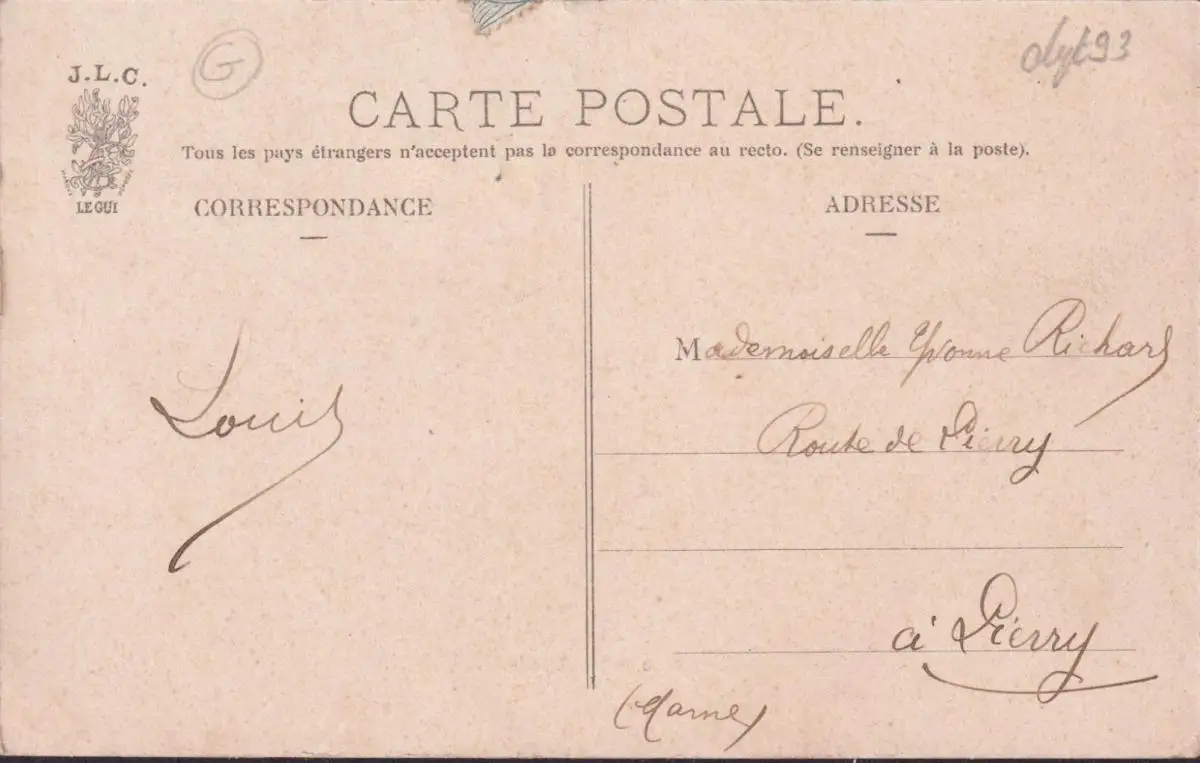 J.L.C.
G
CARTE POSTALE.
Tous les pays étrangers n'acceptent pas la correspondance au recto. (Se renseigner à la poste).
LE GUI
CORRESPONDANCE
ADRESSE
Mademoiselle Yvonne Richard
Route de Pierry
Louis
à Pierry
(Marne)